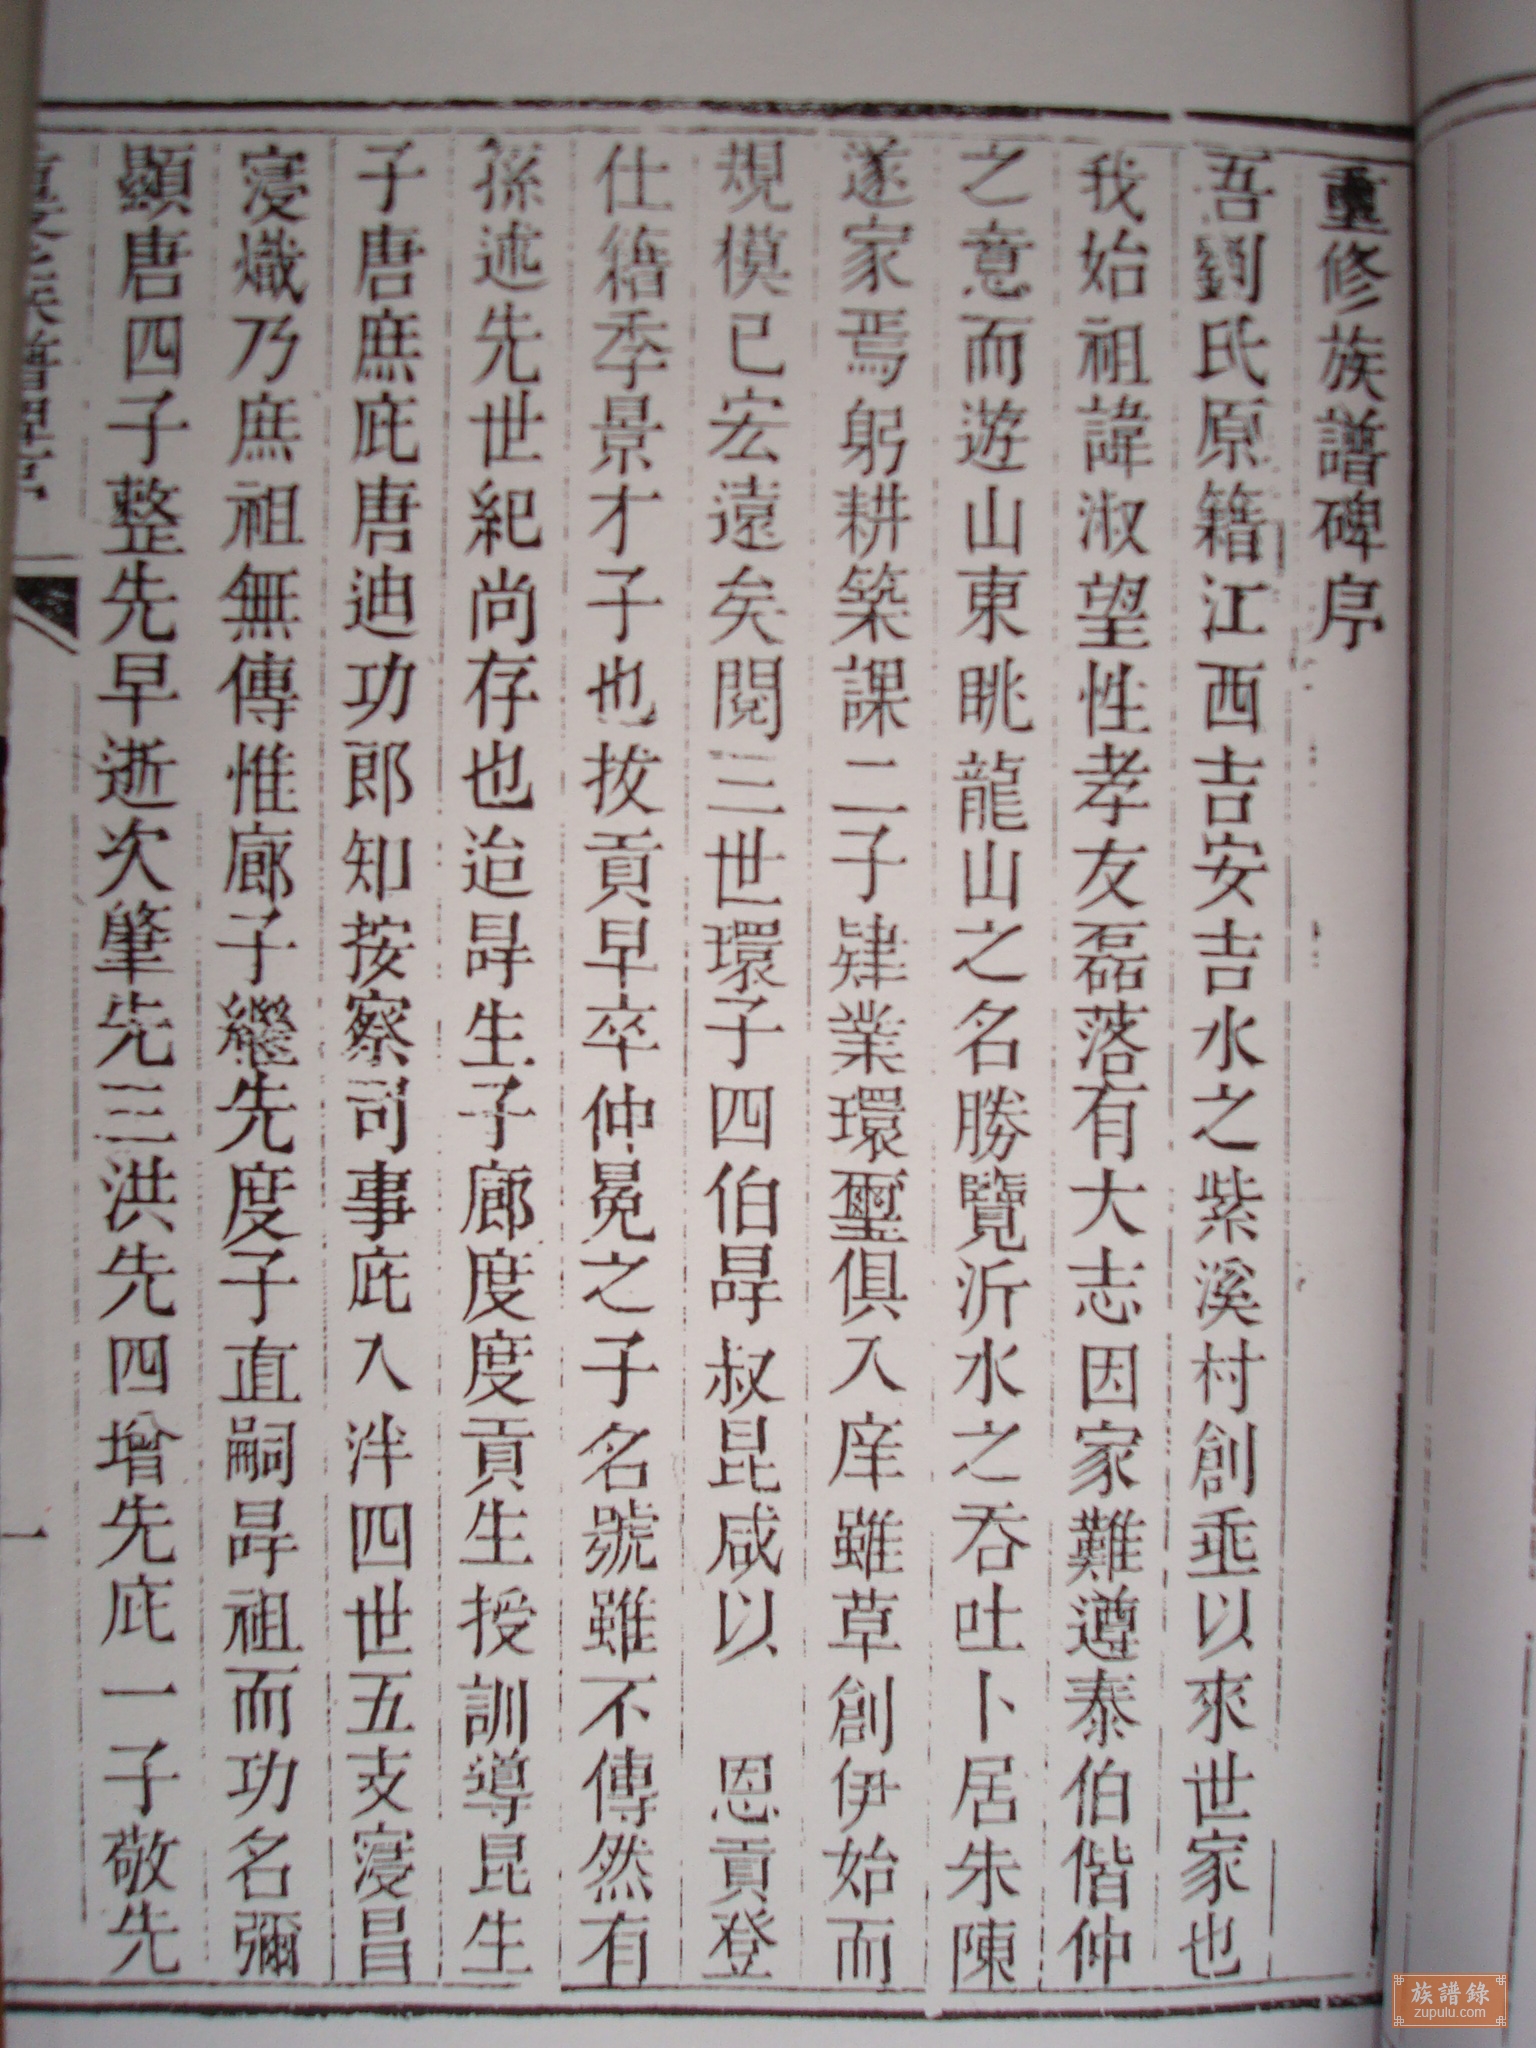 重修族譜碑序
吾劉氏原籍江西吉安吉水之紫溪村創垂以來世家也
我始祖諱淑望性孝友磊落有大志因家難遵泰伯偕仲
之意而遊山東眺龍山之名勝覽沂水之吞吐卜居朱陳
遂家焉躬耕築課二子肄業環璽俱入庠雖草創伊始而
規模已宏遠矣閱三世環子四伯昪叔昆咸以 恩貢登
仕籍季景才子也拔貢早卒仲冕之子名號雖不傳然有
孫述先世紀尚存也迨昪生子廊度度貢生授訓導昆生
子唐庶庇唐迪功郎知按察司事庇入泮四世五支寖昌
寖熾乃庶祖無傳惟廊子繼先度子直嗣昪祖而功名彌
顯唐四子整先早逝次肇先三洪先四增先庇一子敬先
一
族譜錄
zupulu.com